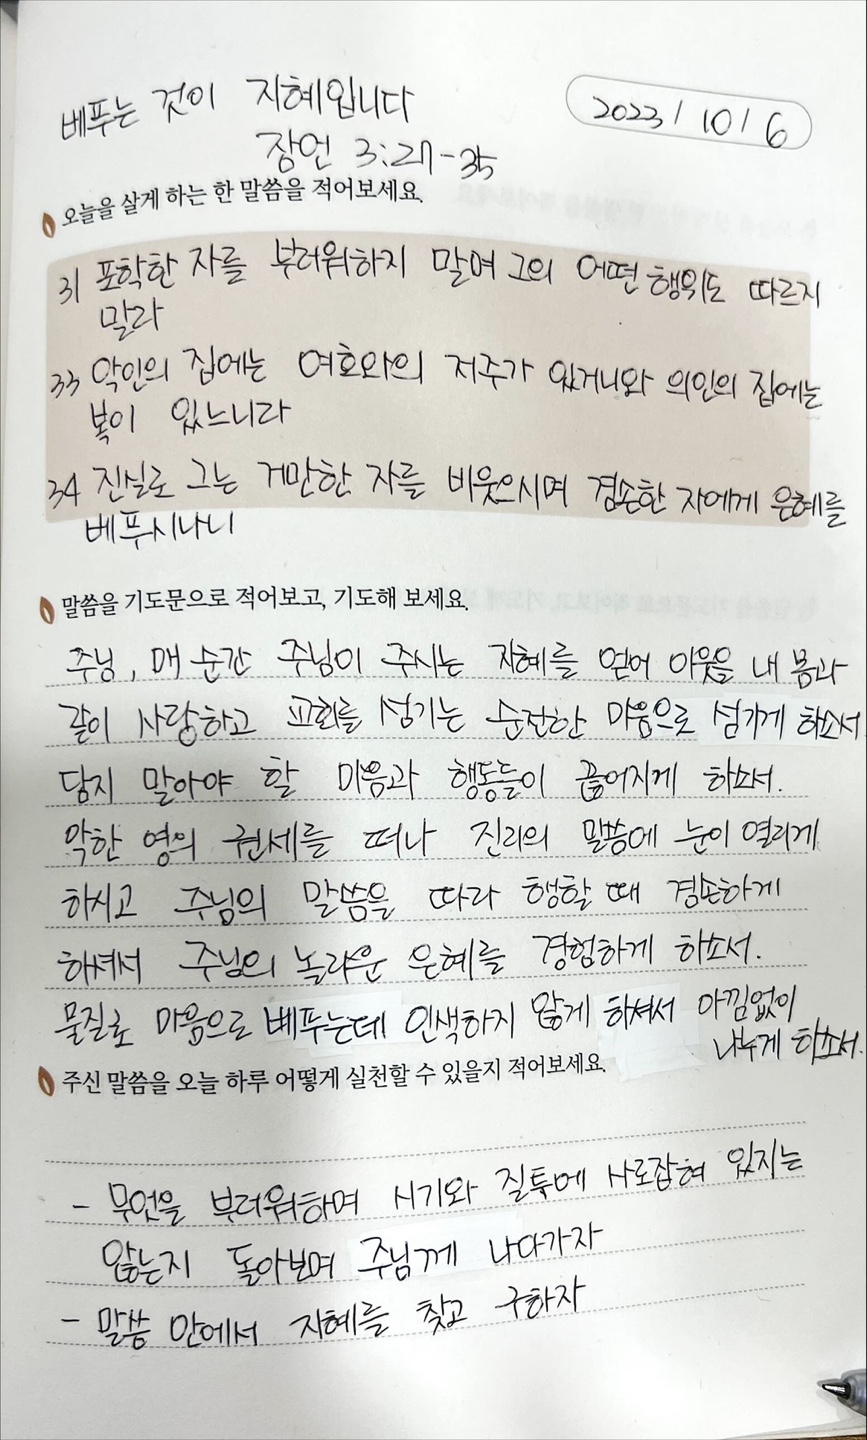 베푸는 것이 지혜입니다
2023/10/6
잠언 3:27-35
오늘을 살게 하는 한 말씀을 적어보세요.
31 포학한 자를 부러워하지 말며 그의 어떤 행위도 따르지
말라
33 악인의 집에는 여호와의 저주가 있거니와 의인의 집에는
복이 있느니라
34 진실로 그는 거만한 자를 비웃으시며 겸손한 자에게 은혜를
베푸시나니
말씀을 기도문으로 적어보고, 기도해 보세요.
주님, 매 순간 주님이 주시는 지혜를 얻어 이웃을 내 몸과
같이 사랑하고 교회를 섬기는 순전한 마음으로 섬기게 하소서
닮지 말아야 할 마음과 행동들이 끊어지게 하소서.
악한 영의 권세를 떠나 진리의 말씀에 눈이 열리게
하시고 주님의 말씀을 따라 행할 때 겸손하게
하셔서 주님의 놀라운 은혜를 경험하게 하소서.
물질로 마음으로 베푸는데 인색하지 않게 하셔서 아낌없이
나누게 하소서.
주신 말씀을 오늘 하루 어떻게 실천할 수 있을지 적어보세요.
- 무엇을 부러워하며 시기와 질투에 사로잡혀 있지는
않는지 돌아보며 주님께 나아가자
- 말씀 안에서 지혜를 찾고 구하자